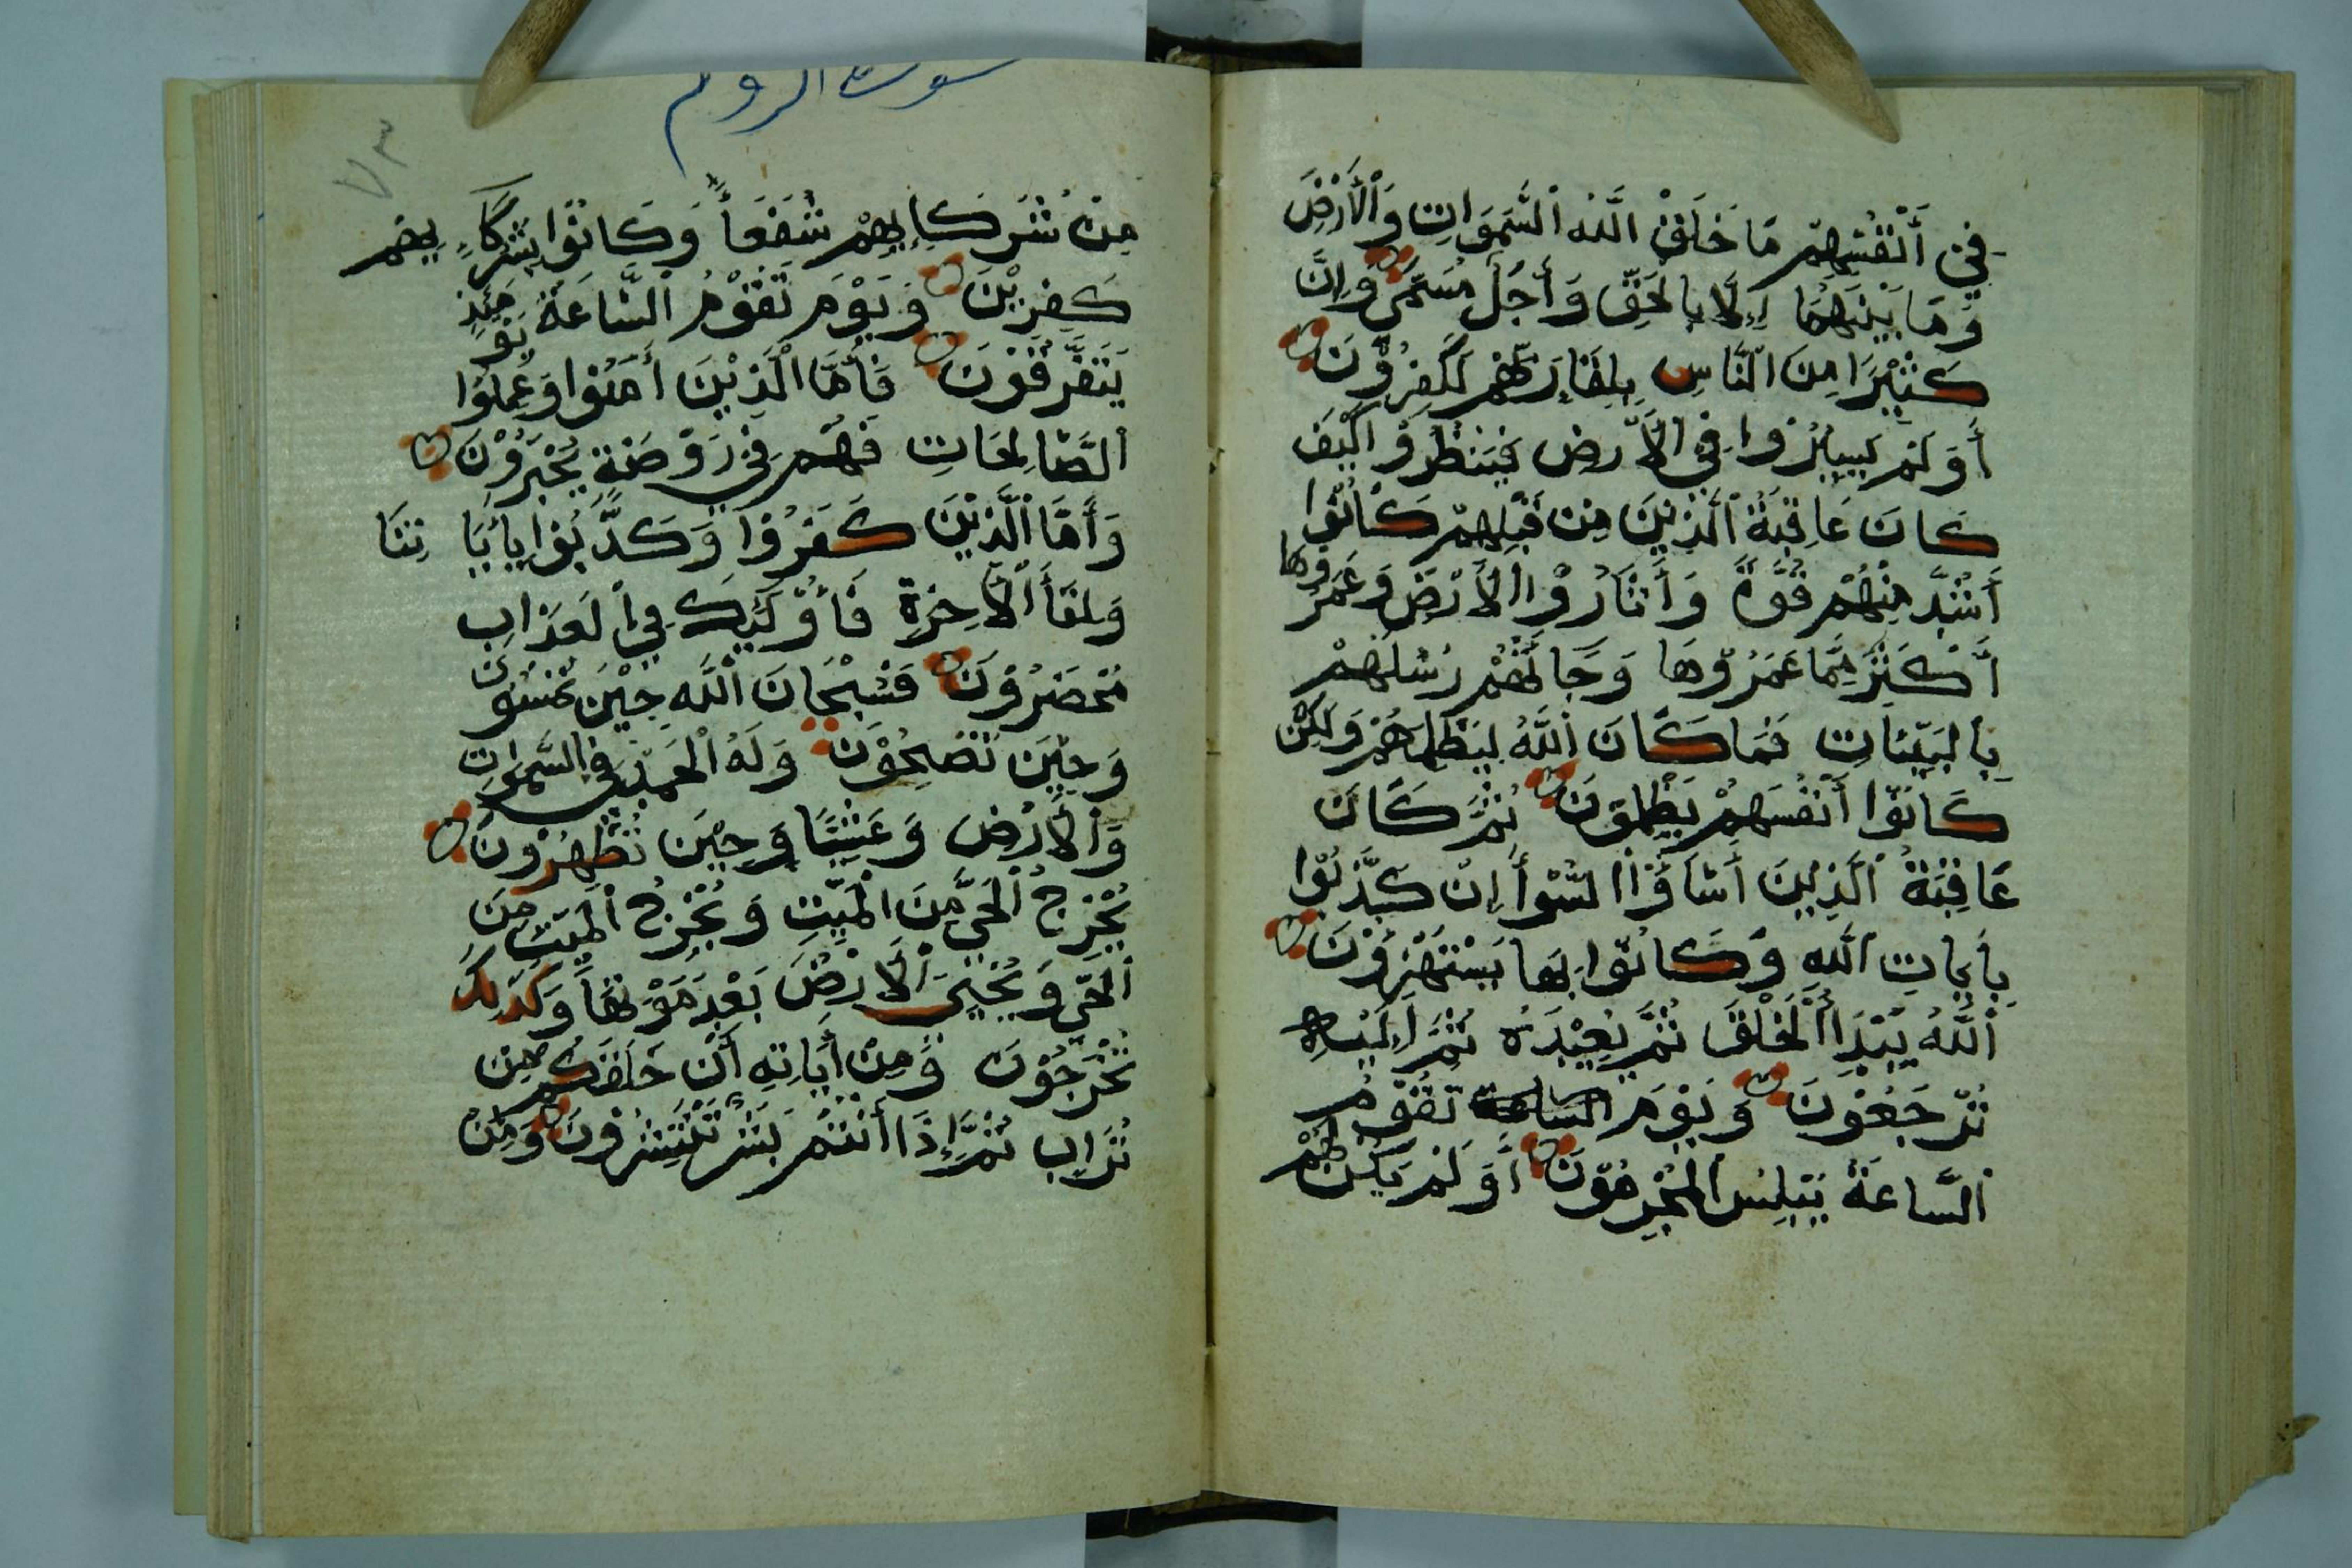 في أَنْفُسِهِمْ مَا خَلَقَ اللَّه السَّمَوَاتِ وَالْأَرْضَ
وَمَا بَيْنَهُمَا إِلَّا بِالْحَقِّ وَأَجَلٍ مُسَمًّى وَإِنَّ
كَثِيْرًا مِنَ النَّاسِ بِلِقَاءِ رَبِّهِمْ لَكَفِرُوْنَ
أَوَلَمْ يَسِيْرُوا فِي الْأَرْضِ فَيَنْظُرُوْا كَيْفَ
كَانَ عَاقِبَةُ الَّذِيْنَ مِنْ قَبْلِهِمْ كَانُوْا
أَشَدَّ مِنْهُمْ قُوَّةً وَأَثَارُوْا الْأَرْضَ وَعَمَرُوهَا
أَكْثَرَ مِمَّا عَمَرُوْهَا وَجَاَتْهُمْ رُسُلُهُمْ
بِالْبَيِّنَاتِ فَمَا كَانَ اللَّهُ لِيَظْلِمَهُمْ وَلَكِنْ
كَانُوْا أَنْفُسَهُمْ يَظْلِمُوْنَ ثُمَّ كَانَ
عَاقِبَةُ الَّذِيْنَ أَسَاؤُا السُّوْأَ اِنْ كَذَّبُوْا
بِأَيَاتِ اللَّه وَكَانُوْا بِهَا يَسْتَهْزِؤُنَ
اَللَّهُ يَبْدَأُ الْخَلْقَ ثُمَّ يُعِيْدُهُ ثُمَّ إِلَيْهِ
تُرْجَعُوْنَ وَيَوْمَ الساعة تَقُوْمُ
السَّاعَةُ يُبْلِسُ الْمُجْرِمُوْنَ أَوَلَمْ يَكُنْ لَهُمْ
سورة الروم
٧٣
مِنْ شُرَكَائِهِمْ شُفَعَأُ وَكَانُوْا بِشُرَكَاءِ يهم
كَفِرِيْنَ وَيَوْمَ تَقُوْمُ السَّاعَةُ يَوْمَئِذٍ
يَتَفَرَّقُوْنَ فَأَمَّا الَّذِيْنَ أَمَنُوْا وَعَمِلُوْا
الصَّالِحَاتِ فَهُمْ فِي رَوْضَةٍ يُحْبَرُوْنَ
وَأَمَّا الَّذِيْنَ كَفَرُوْا وَكَذَّبُوْا بِأَيَا تِنَا
وَلِقَأِ الْأَخِرَةِ فَأُوْلَئِكَ فِي الْعَذَابِ
مُحْضَرُوْنَ فَسُبْحَانَ اللَّهِ حِيْنَ تُمْسُوْنَ
وَحِيْنَ تُصْبِحُوْنَ وَلَهُ الْحَمْدُ فِي السَّمَوَاتِ
وَالْأَرْضِ وَعَشِيًّا وَحِيْنَ تُظْهِرُوْنَ
يُخْرِجُ الْحَيَّ مِنَ الْمَيِّتِ وَيُخْرِجُ الْمَيِّتَ مِنَ
الْحَيِّ وَيُحْيِيَ الْأَرْضَ بَعْدَ مَوْتِهَا وَكَذَلِكَ
تُخْرَجُوْنَ وَمِنْ أَيَاتِهِ أَنْ خَلَقَكُمْ مِنْ
تُرَابٍ ثُمَّ إِذَا أَنْتُمْ بَشَرٌ تَنْتَشِرُوْنَ وَمِنْ